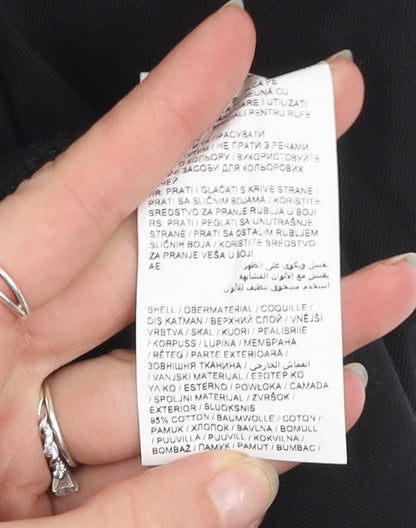 CA PE
UNĂ CU
ARE / UTILIZATI
ALI PENTRU RUFE
ПРАСУВАТИ
/ НЕ ПРАТИ З РЕЧАМИ
КОЛЬОРУ / ВИКОРИСТОВУЙТЕ
ЗАСОБИ ДЛЯ КОЛЬОРОВИХ
HR: PRATI I GLAČATI S KRIVE STRANE /
PRATI SA SLIČNIM BOJAMA / KORISTITE
SREDSTVO ZA PRANJE RUBLJA U BOJI
RS: PRATI I PEGLATI SA UNUTRAŠNJE
STRANE / PRATI SA OSTALIM RUBLJEM
SLIČNIH BOJA / KORISTITE SREDSTVO
ZA PRANJE VEŠA U BOJI
يغسل ويكوى على الظهر
يغسل مع الألوان المشابهة
AE: استخدم مسحوق تنظيف للألوان
SHELL / OBERMATERIAL / COQUILLE /
DIŞ KATMAN / ВЕРХНИЙ СЛОЙ / VNĚJŠÍ
VRSTVA / SKAL / KUORI / PEALISRIIE
/ KORPUSS / LUPINA / МЕМБРАНА
/ RÉTEG / PARTE EXTERIOARĂ /
ЗОВНІШНЯ ТКАНИНА / القماش الخارجي
/ VANJSKI MATERIJAL / ΕΞΩΤΕΡΙΚΟ
ΥΛΙΚΟ / ESTERNO / POWŁOKA / CAMADA
/ SPOLJNI MATERIJAL / ZVRŠOK /
EXTERIOR / SLUOKSNIS
95% COTTON / BAUMWOLLE / COTON /
PAMUK / ХЛОПОК / BAVLNA / BOMULL
/ PUUVILLA / PUUVILL / KOKVILNA /
BOMBAŽ / ПАМУК / PAMUT / BUMBAC /